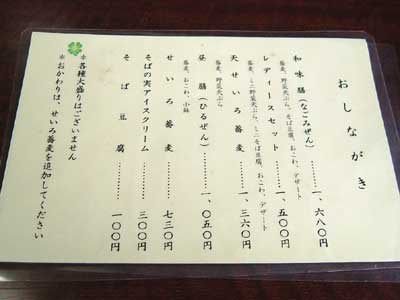 おしながき
和味膳(なごみぜん)……一、六八〇円
蕎麦、野菜天ぷら、そば豆腐、おこわ、デザート
レディースセット……一、五〇〇円
蕎麦、ミニ野菜天ぷら、ミニそば豆腐、おこわ、デザート
天せいろ蕎麦……一、三六〇円
蕎麦、野菜天ぷら
昼膳(ひるぜん)……一、〇五〇円
蕎麦、おこわ、小鉢
せいろ蕎麦……七三〇円
そばの実アイスクリーム……三〇〇円
そば豆腐……一〇〇円
*各種大盛りはございません
*おかわりは、せいろ蕎麦を追加してください